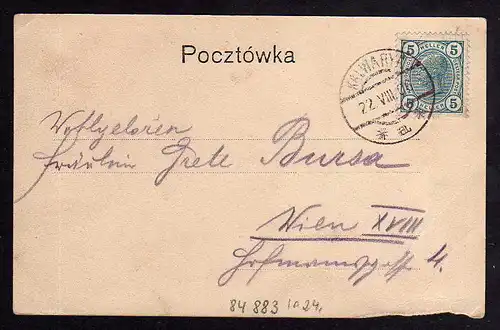 Pocztówka
5 HELLER 5
KALWARYA
22 VIII
5 HELLER 5
Wohlgeboren
Fräulein Grete Bursa
Wien XVIII
4.
84 883